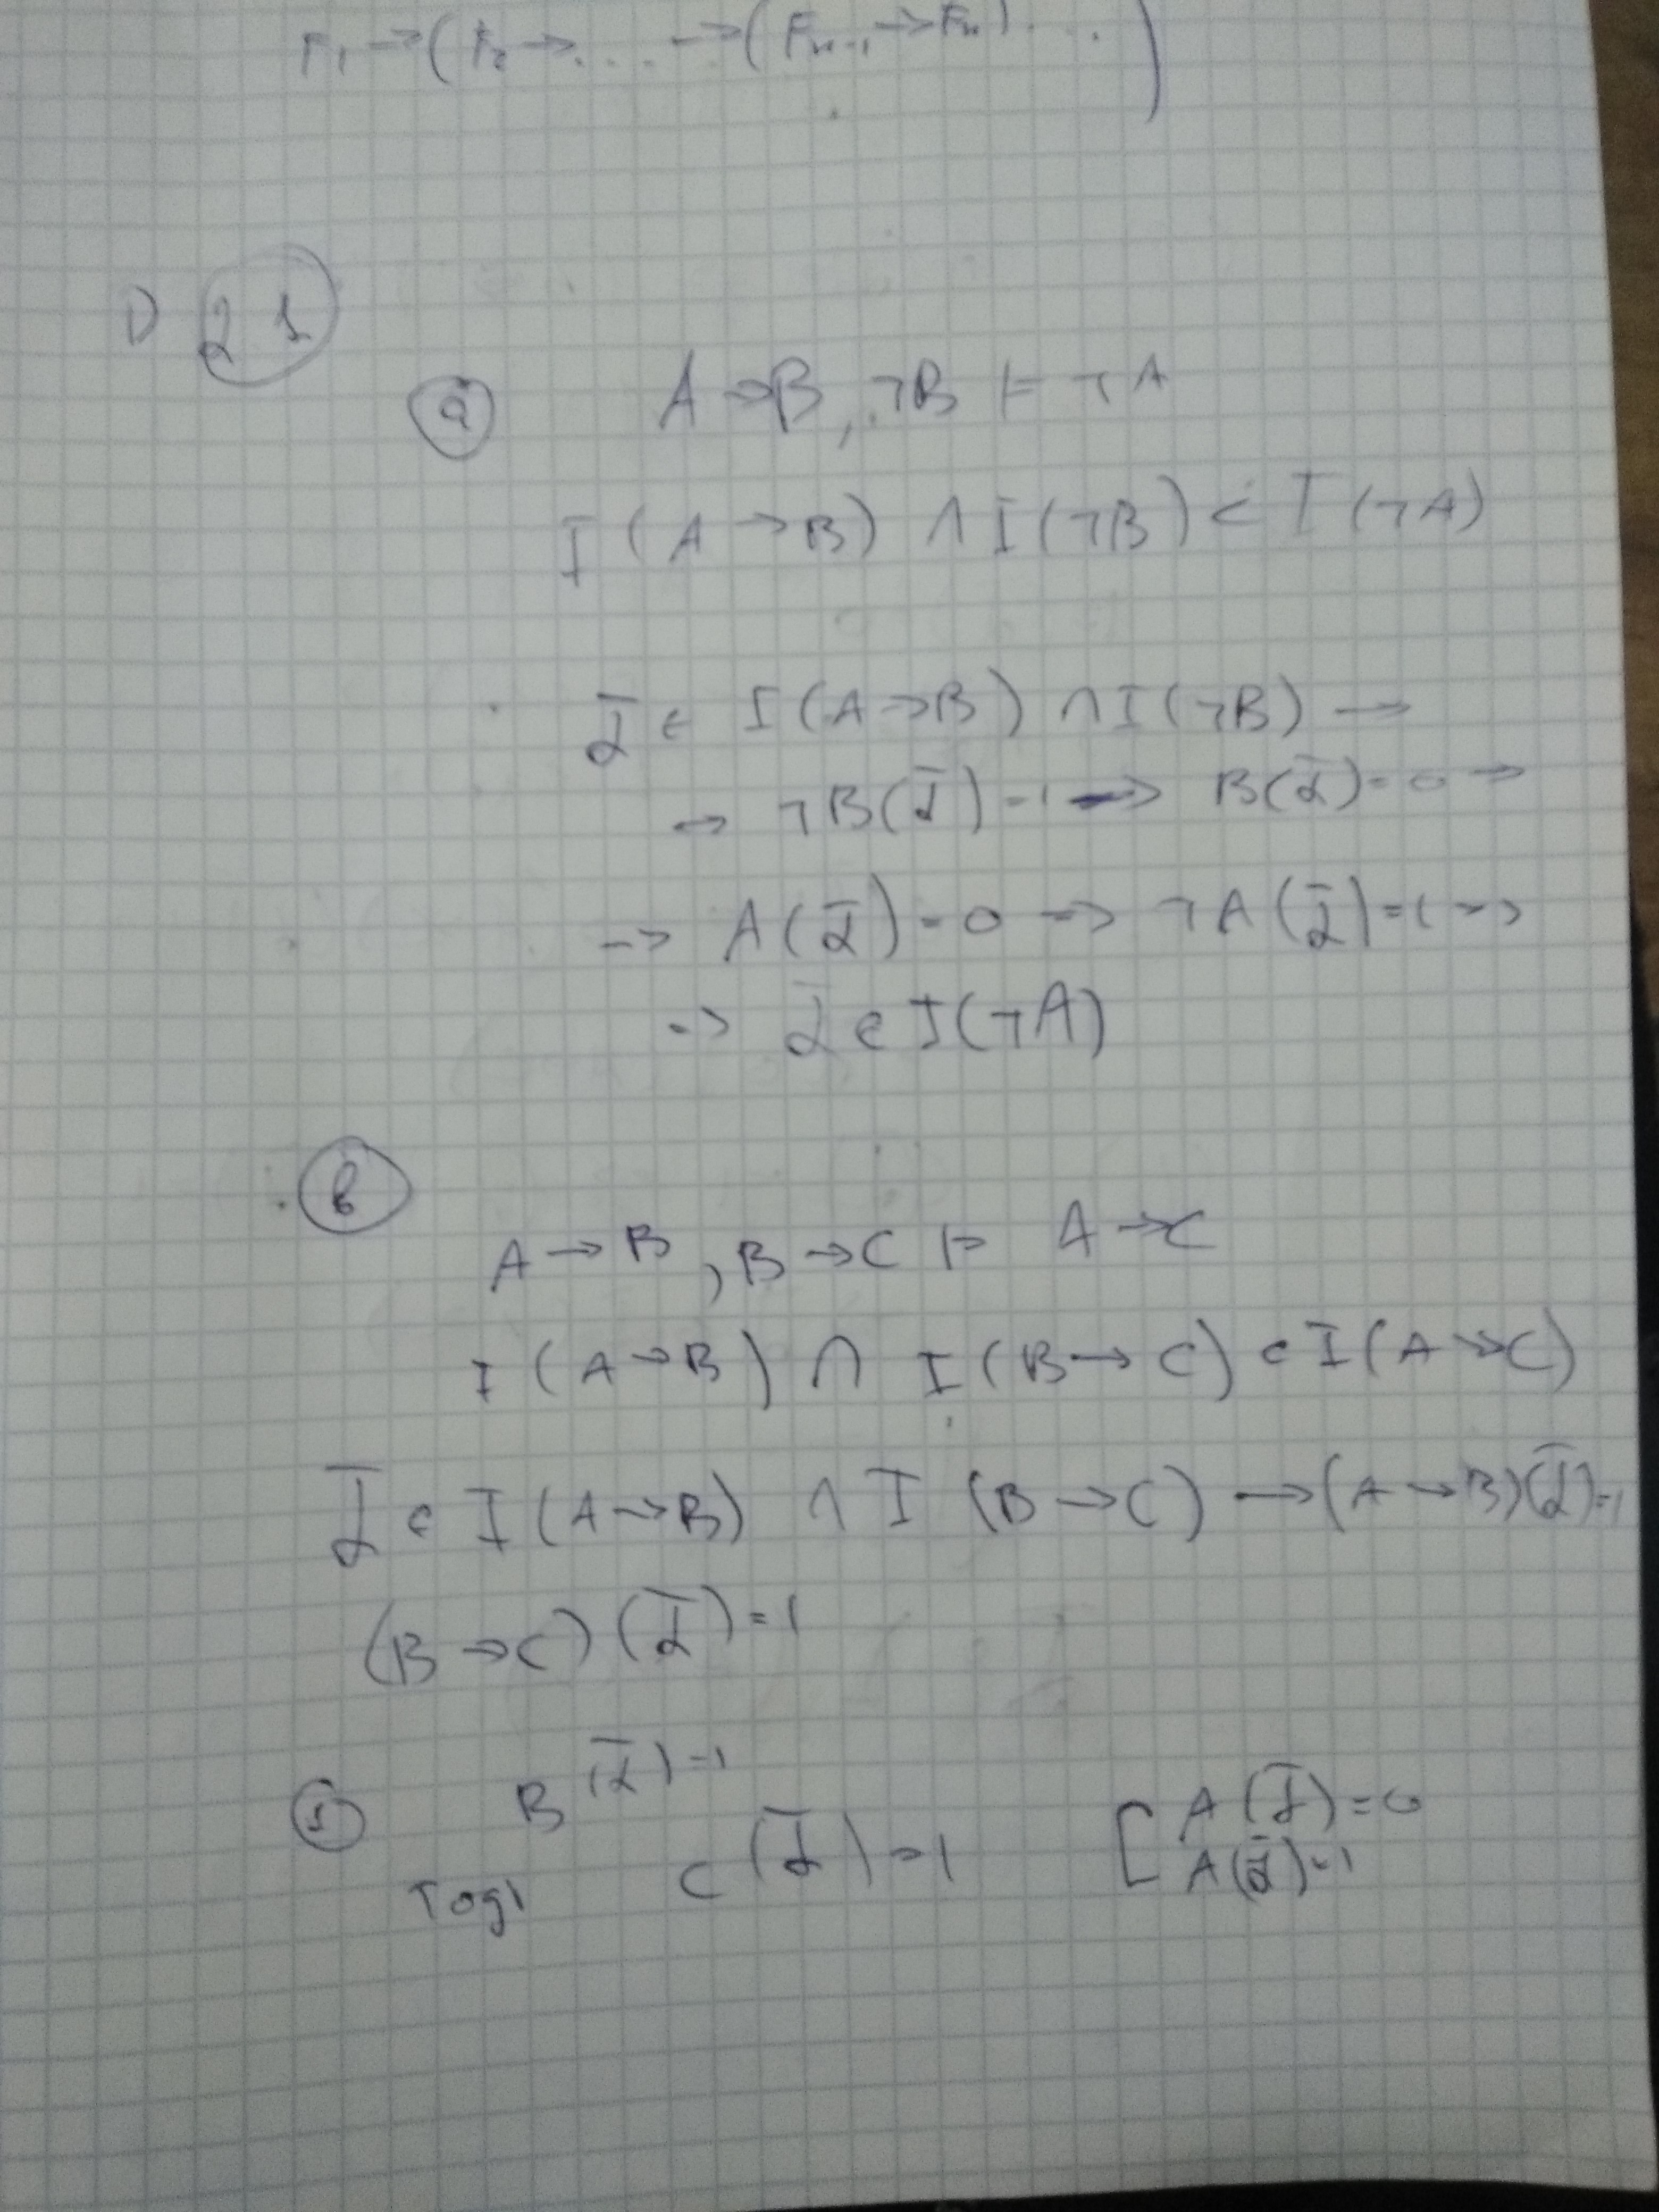 F₁ → (F₂ → ... → (Fₙ₋₁ → Fₙ) ...)
D 21
a
A → B, ¬B ⊨ ¬A
I (A → B) ∩ I (¬B) ⊂ I (¬A)
ᾱ ∈ I (A → B) ∩ I (¬B) →
→ ¬B(ᾱ) = 1 → B(ᾱ) = 0 →
→ A(ᾱ) = 0 → ¬A(ᾱ) = 1 →
→ ᾱ ∈ I(¬A)
в
A → B, B → C ⊨ A → C
I (A → B) ∩ I (B → C) ⊂ I (A → C)
ᾱ ∈ I (A → B) ∩ I (B → C) → (A → B)(ᾱ) = 1
(B → C)(ᾱ) = 1
1 B(ᾱ) = 1
Тоді C(ᾱ) = 1 [ A(ᾱ) = 0
A(ᾱ) = 1